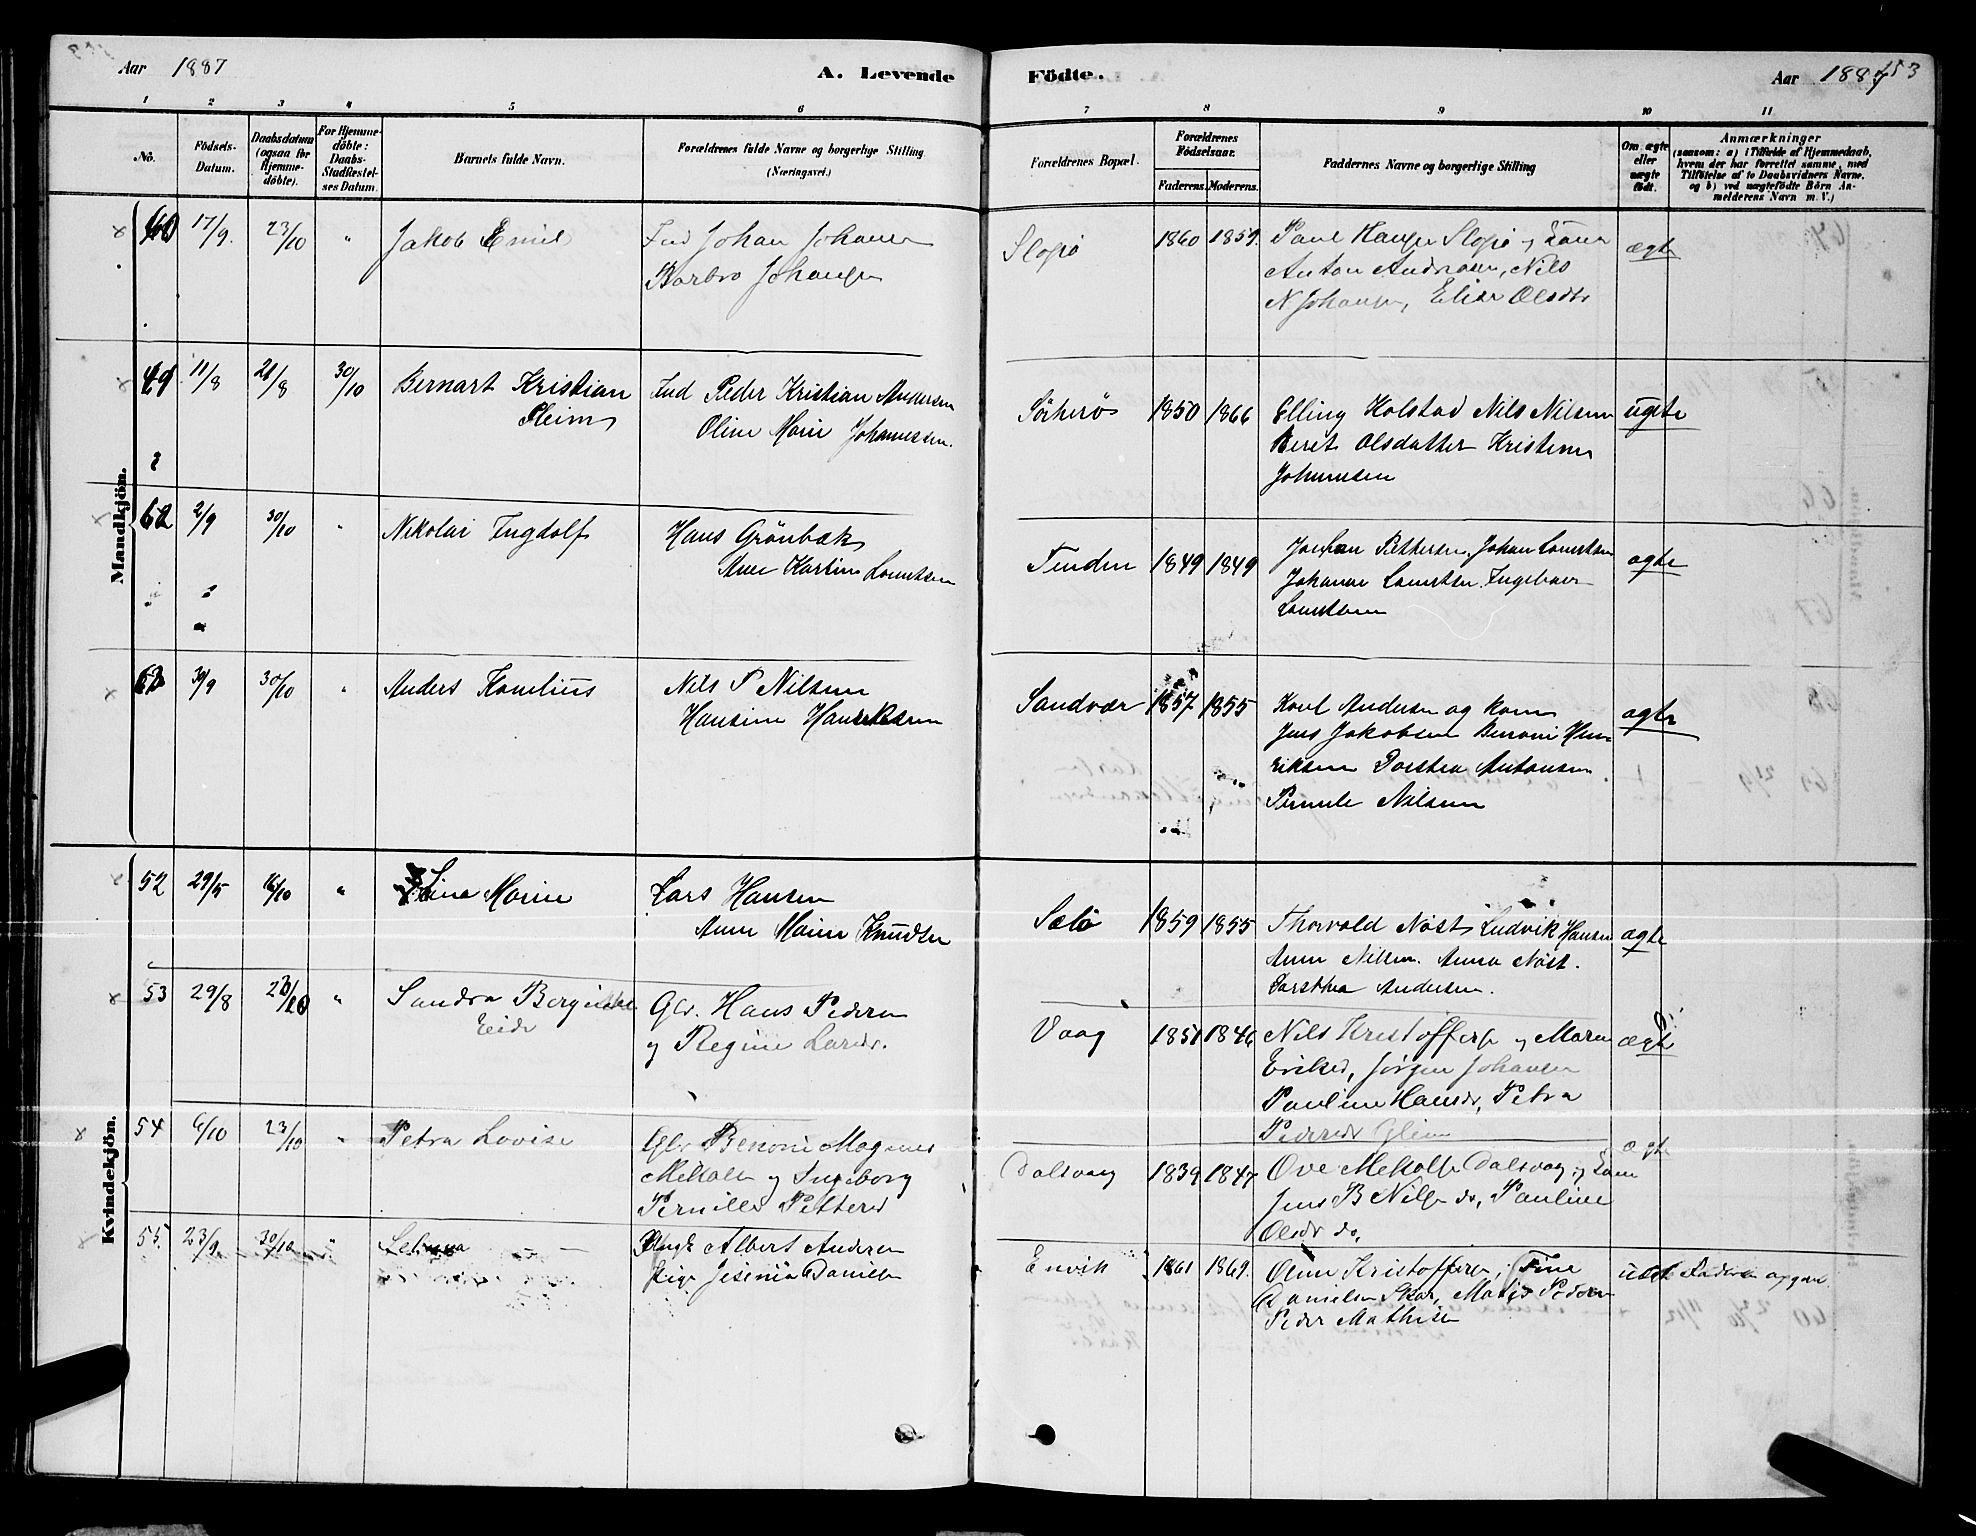 Aar 1887
A. Levende Födte.
Aar 1887
153
1 2 3 4 5 6 7 8 9 10 11
No.
Födsels-Datum.
Daabsdatum (ogsaa for Hjemme-döbte).
For Hjemme-döbte: Daabs-Stadfæstel-ses Datum.
Barnets fulde Navn.
Forældrenes fulde Navne og borgerlige Stilling (Næringsvei.)
Forældrenes Bopæl.
Forældrenes Födselsaar.
Faderens. Moderens.
Faddernes Navne og borgerlige Stilling
Om ægte eller uægte födt.
Anmærkninger
(saasom: a) i Tilfælde af Hjemmedaab,
hvem der har forrettet samme, med
Tilföielse af to Daabsvidners Navne,
og b) ved uægtefödte Börn An-
melderens Navn m. V.)
Mandkjön.
60 17/9. 23/10 " Jakob Emil
Ind Johan Johansen
Barbro Johansen
1860 1859.
Paul Hansen
Anton Andreasen, Nils
N Johansen, Elise Olsdtr
ægte
61 11/8 21/8 30/10 Bernart Kristian
Heim
Ind Peder Kristian Andersen
Oline Marie Johannessen.
Sörherö 1850 1866
Elling Holstad Nils Nilsen
Beret Olsdatter Kristine
Johannsen
62 2/9 30/10 " Nikolai Ingdolf
Hans Grönbæk
Ane Karline Lorentsen
Tenden 1849 1849
Pettersen. Johan Lorentsen
Johanna Lorentsen. Ingeborg
Lorentsen
ægte
63 30/9 30/10 " Anders Kornelius
Nils P Nilsen
Hansine Henriksen
Sandvær 1857 1855
Karl Andersen og kone
Jens Jakobsen Benoni Hen-
riksen Dorthea Antonsen
Pernele Nilsen
ægte
Kvindekjön.
52 29/5 16/10 " Line Marie
Lars Hansen
Ane Marie Knudsen
Selö 1859 1855
Thorvald Nöst Ludvik Hansen
Anne Nilsen. Anna Nöst.
Dorthea Andersen.
ægte
53 29/8 23/10 " Sandra Bergitte
Eide
Gbr. Hans Pedersen
og Regine Larsdr.
Vaag 1851 1846
Nils Kristoffersen og Maren
Eriksd, Jörgen Johansen
Pauline Hansdr, Petra
Pedersdr Glein
ægte
54 6/10 23/10 " Petra Lovise
Gbr Benoni Magnus
Mikalsen og Ingeborg
Pernille Pettersd
Dalsvaag 1839 1847
Ove Mikalsen Dalsvaag og Kone
Jens B Nilsen do, Pauline
Olsdr do,
ægte
55. 23/9 30/10 " Selma
Ungk Albert Andersen
Pige Jesenia Danielsen
Envik 1861 1869.
Anne Kristoffersen, Fine
Danielsen Skar, Peder Mathisen